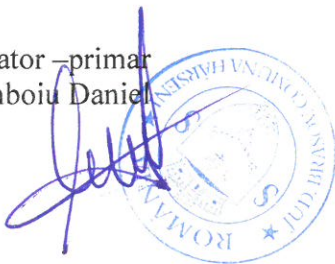 ator –primar
mboiu Daniel
ROMÂNIA ★ JUD. BRAȘOV COMUNA HÂRSENI ★
S S